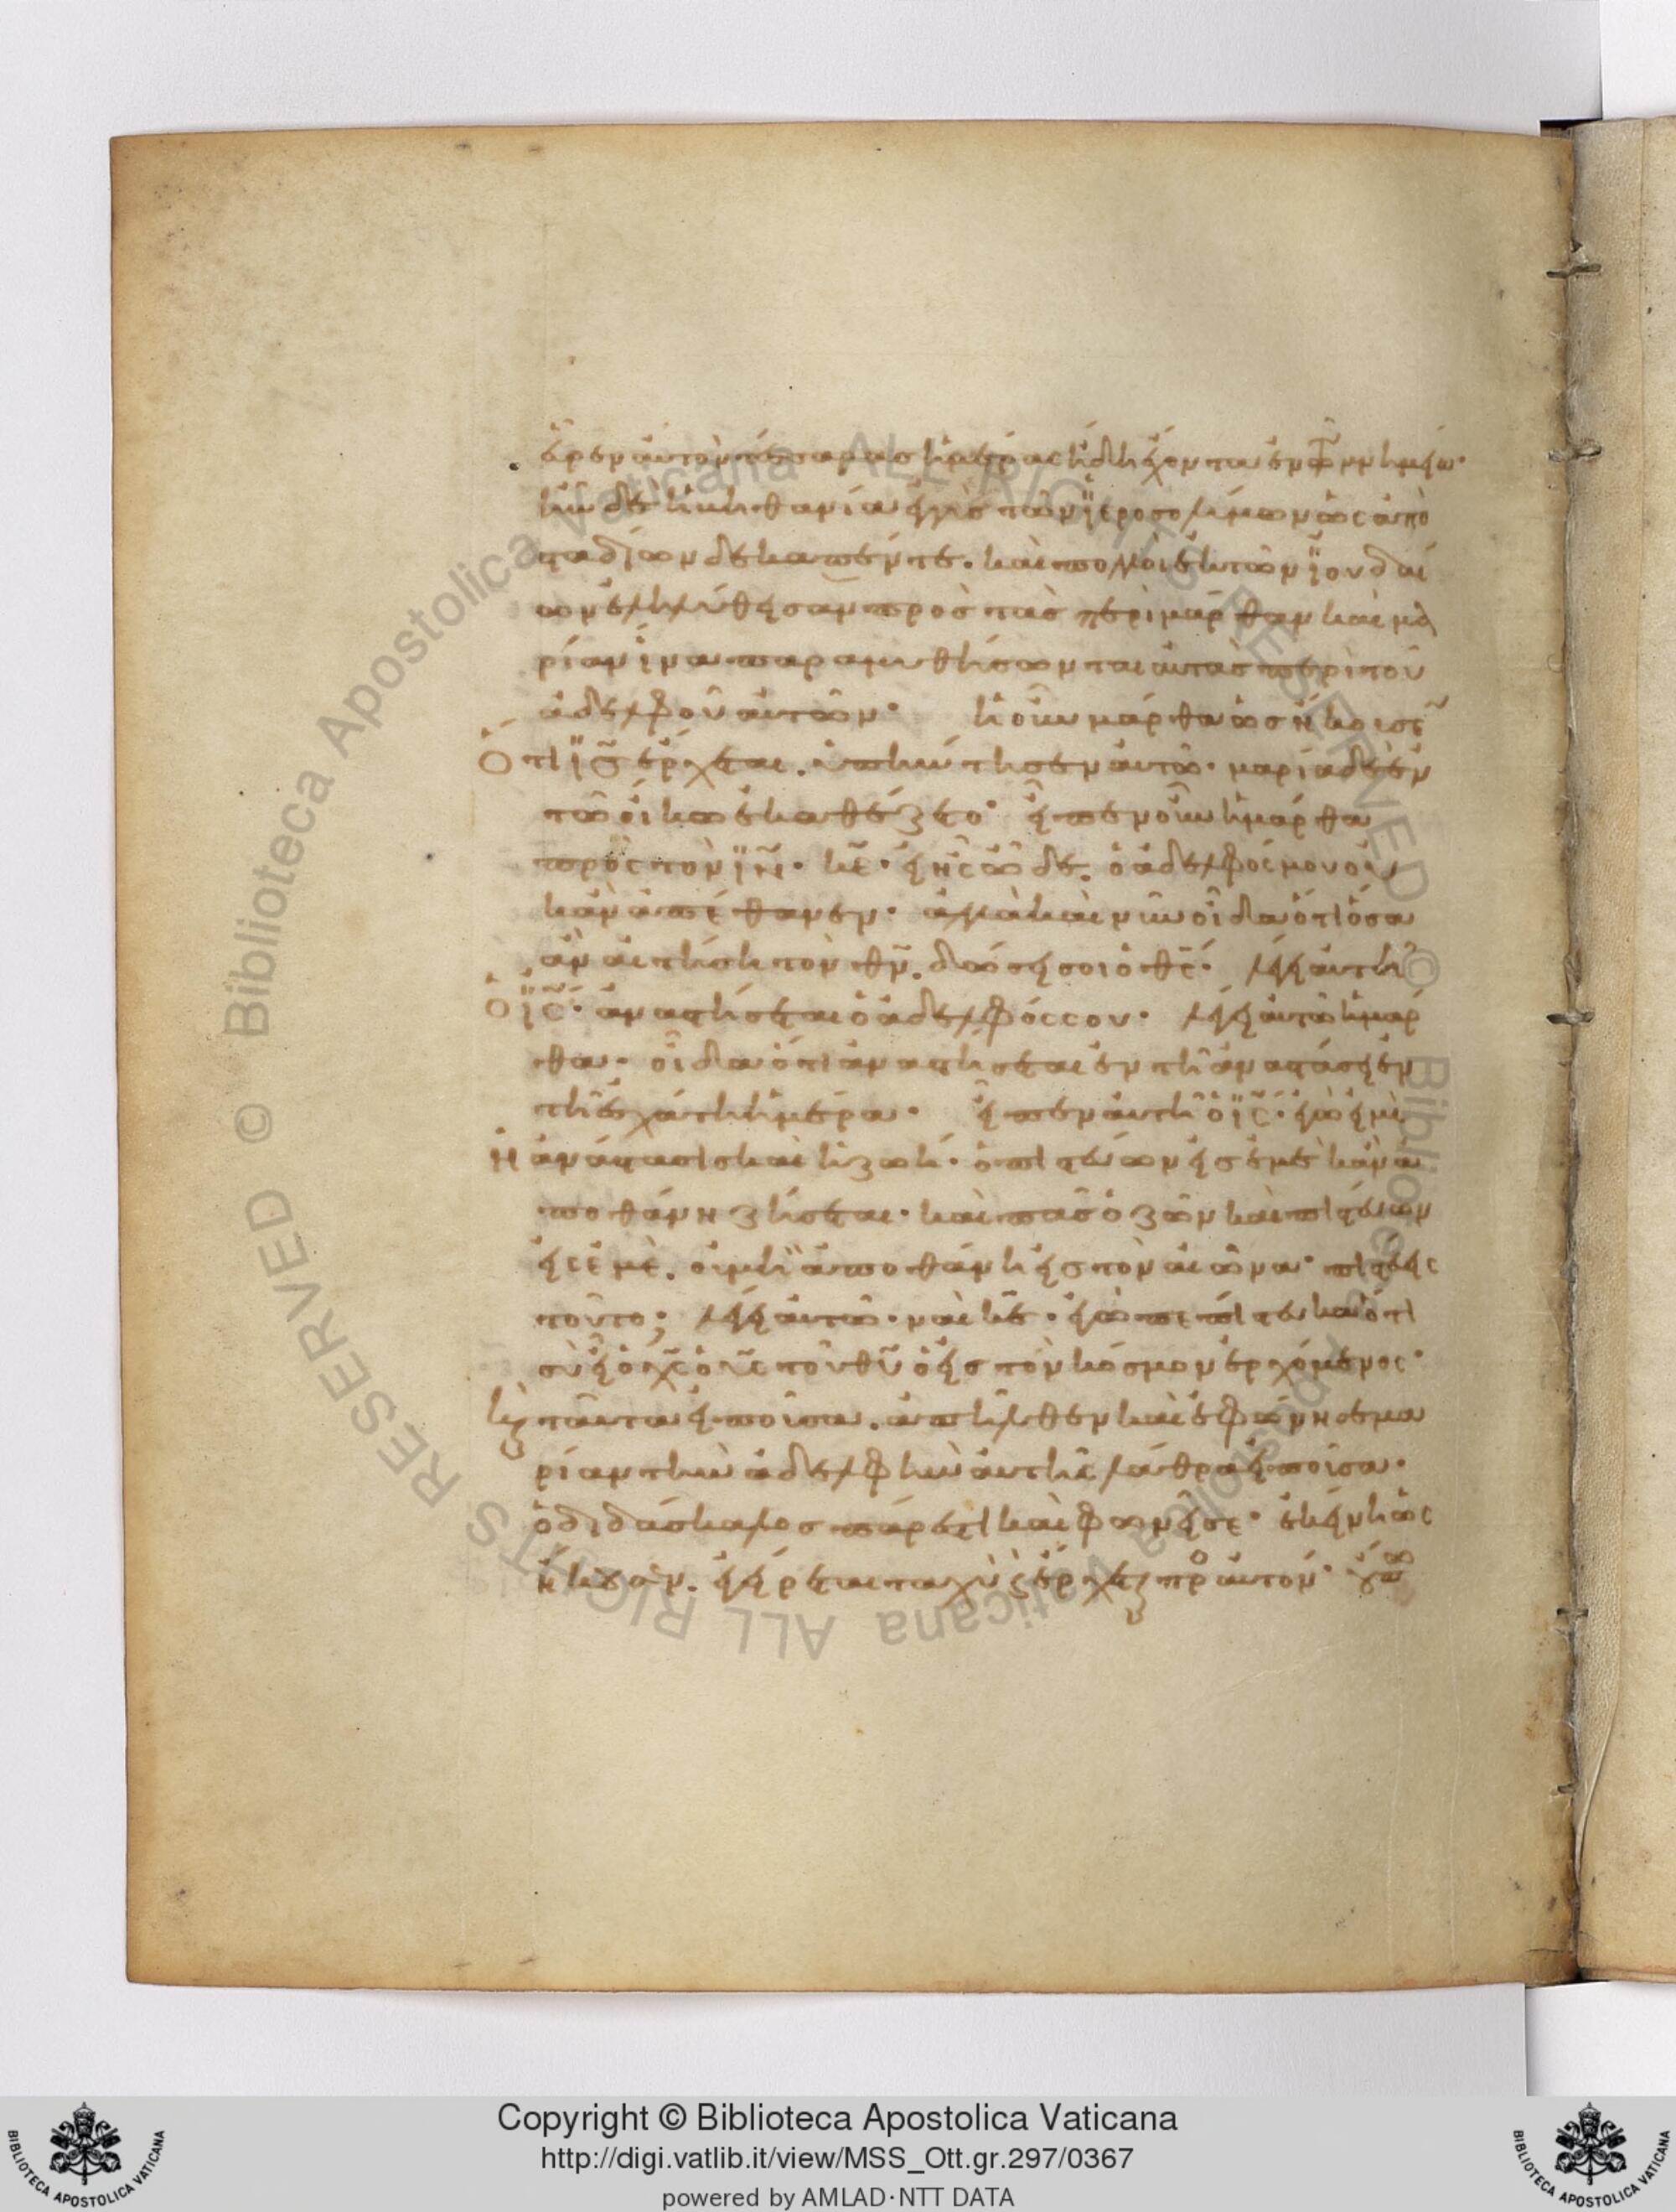 εὗρεν αὐτὸν τέσσαρας ἡμέρας ἤδη ἔχοντα ἐν τῶ μνημείω·
ἦν δὲ ἡ βηθανία ἐγγὺς τῶν ϊεροσολύμων ὡς ἀπὸ
σταδίων δεκαπέντε. καὶ πολλοὶ ἐκ τῶν ϊουδαί
ων ἐληλύθεισαν πρὸς τὰς περὶ μάρθαν καὶ μα
ρίαν ἵνα παραμυθήσωνται αὐτὰς περὶ τοῦ
ἀδελφοῦ αὐτῶν· ἡ οὖν μάρθα ὡς ἤκουσεν
ὅτι ϊς ἔρχεται. ὑπήντησεν αὐτῶ· μαρία δὲ ἐν
τῶ οἴκω ἐκαθέζετο· εἶπεν οὖν ἡ μάρθα
πρὸς τὸν ϊν· κε· εἰ ἦς ὧδε. ὁ ἀδελφός μου οὐ
κἂν ἀπέθανεν· ἀλλὰ καὶ νῦν οἶδα ὅτι ὅσα
ἂν αἰτήση τὸν θν. δώσει σοι ὁ θς· λέγει αὐτῆ
ὁ ϊς· ἀναστήσεται ὁ ἀδελφός σου· λέγει αὐτῶ ἡ μάρ
θα· οἶδα ὅτι ἀναστήσεται ἐν τῆ ἀναστάσει ἐν
τῆ ἐσχάτη ἡμέρα· εἶπεν αὐτῆ ὁ ϊς· ἐγώ εἰμι
ἡ ἀνάστασις καὶ ἡ ζωή· ὁ πιστεύων εἰς ἐμὲ κἂν ἀ
ποθάνη ζήσεται· καὶ πᾶς ὁ ζῶν καὶ πιστεύων
εἰς ἐμὲ. οὐ μὴ ἀποθάνη εἰς τὸν αἰῶνα· πιστεύεις
τοῦτο; λέγει αὐτῶ· ναὶ κε· ἐγὼ πεπίστευκα ὅτι
σὺ εἶ ὁ χς ὁ υς τοῦ θυ ὁ εἰς τὸν κόσμον ἐρχόμενος·
καὶ ταῦτα εἰποῦσα. ἀπῆλθεν καὶ ἐφώνησε μα
ρίαν τὴν ἀδελφὴν αὐτῆς λάθρα εἰποῦσα·
ὁ διδάσκαλος πάρεστι καὶ φωνεῖ σε· ἐκείνη ὡς
ἤκουσεν. ἐγείρεται ταχὺ καὶ ἔρχεται πρ αὐτόν· οὔπω